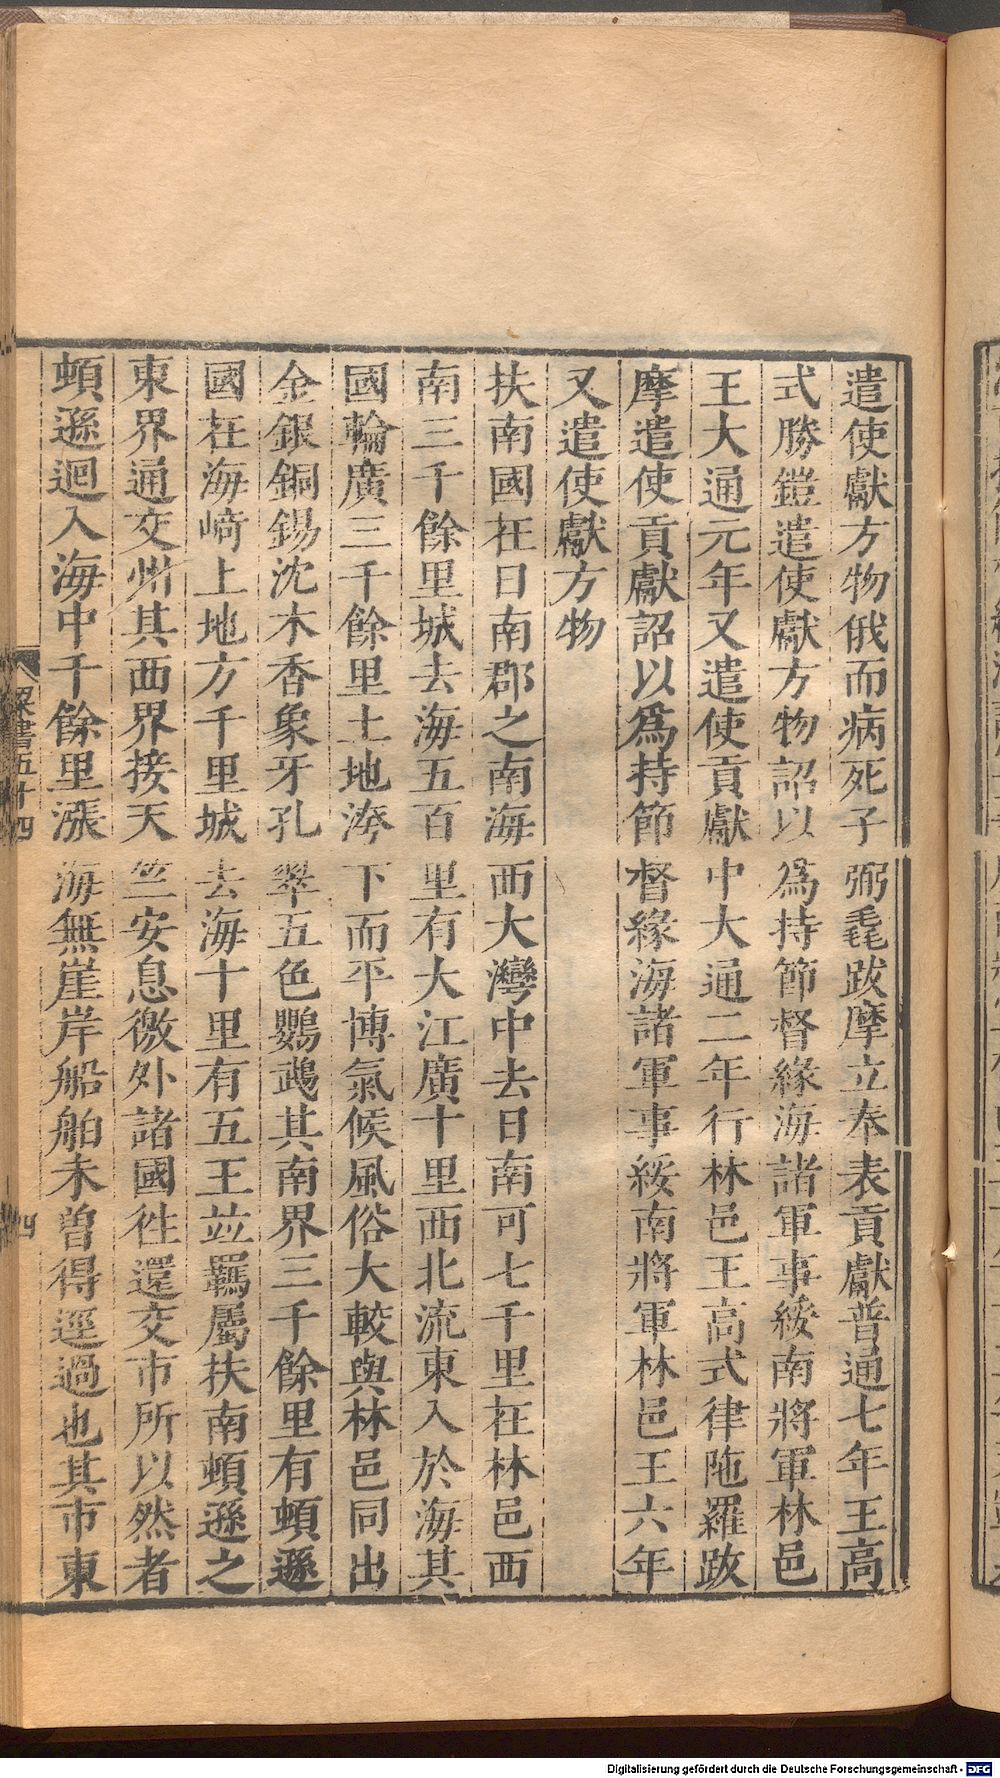 遣使獻方物俄而病死子弼毳跋摩立奉表貢獻普通七年王高
式勝鎧遣使獻方物詔以爲持節督緣海諸軍事綏南將軍林邑
王大通元年又遣使貢獻中大通二年行林邑王高式律陁羅跋
摩遣使貢獻詔以爲持節督緣海諸軍事綏南將軍林邑王六年
又遣使獻方物
扶南國在日南郡之南海西大灣中去日南可七千里在林邑西
南三千餘里城去海五百里有大江廣十里西北流東入於海其
國輪廣三千餘里土地洿下而平博氣候風俗大較與林邑同出
金銀銅錫沈木香象牙孔翠五色鸚鵡其南界三千餘里有頓遜
國在海崎上地方千里城去海十里有五王並羈屬扶南頓遜之
東界通交州其西界接天竺安息徼外諸國徃還交市所以然者
頓遜迴入海中千餘里漲海無崖岸船舶未曾得逕過也其市東
梁書五十四
四
Digitalisierung gefördert durch die Deutsche Forschungsgemeinschaft - DFG